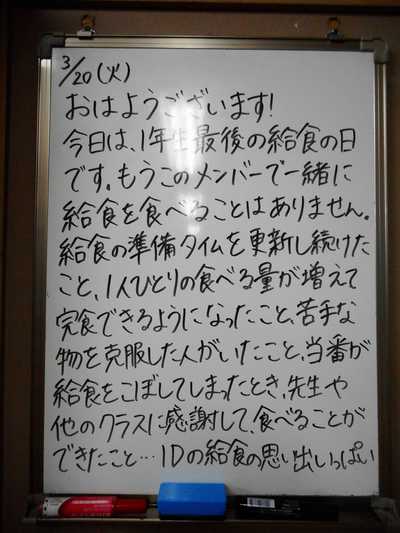 3/20(火)
おはようございます!
今日は、1年生最後の給食の日
です。もうこのメンバーで一緒に
給食を食べることはありません。
給食の準備タイムを更新し続けた
こと、1人ひとりの食べる量が増えて
完食できるようになったこと、苦手な
物を克服した人がいたこと、当番が
給食をこぼしてしまったとき、先生や
他のクラスに感謝して、食べることが
できたこと…1Dの給食の思い出いっぱい